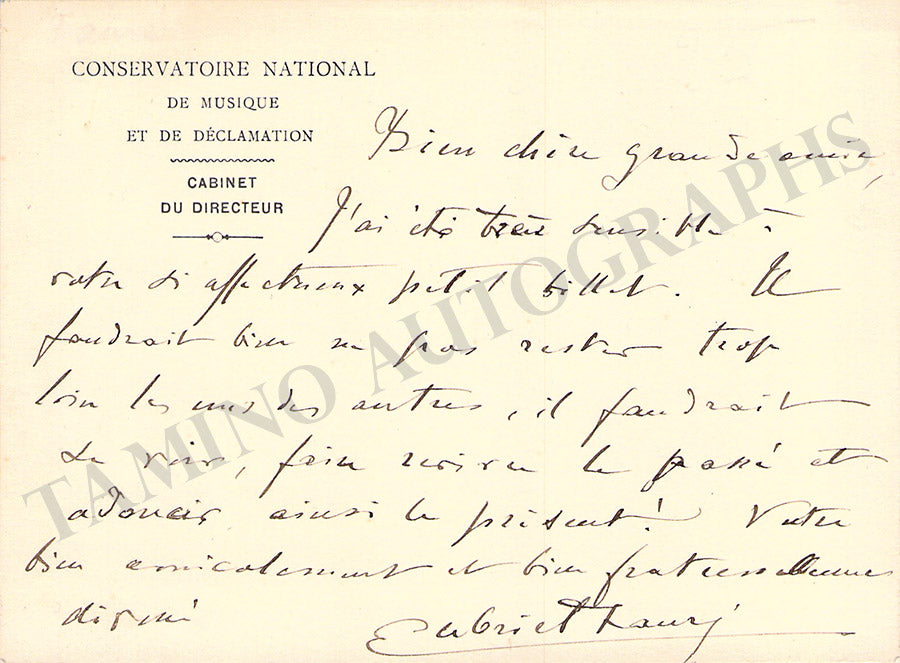 CONSERVATOIRE NATIONAL
DE MUSIQUE
ET DE DÉCLAMATION
CABINET
DU DIRECTEUR
Bien chère grande amie,
J'ai été très sensible à
votre si affectueux petit billet. Il
faudrait bien ne pas rester trop
loin les uns des autres, il faudrait
se voir, faire revivre le passé et
adoucir ainsi le présent! Votre
bien amicalement et bien fraternellement
dévoué
Gabriel Fauré
TAMINO AUTOGRAPHS